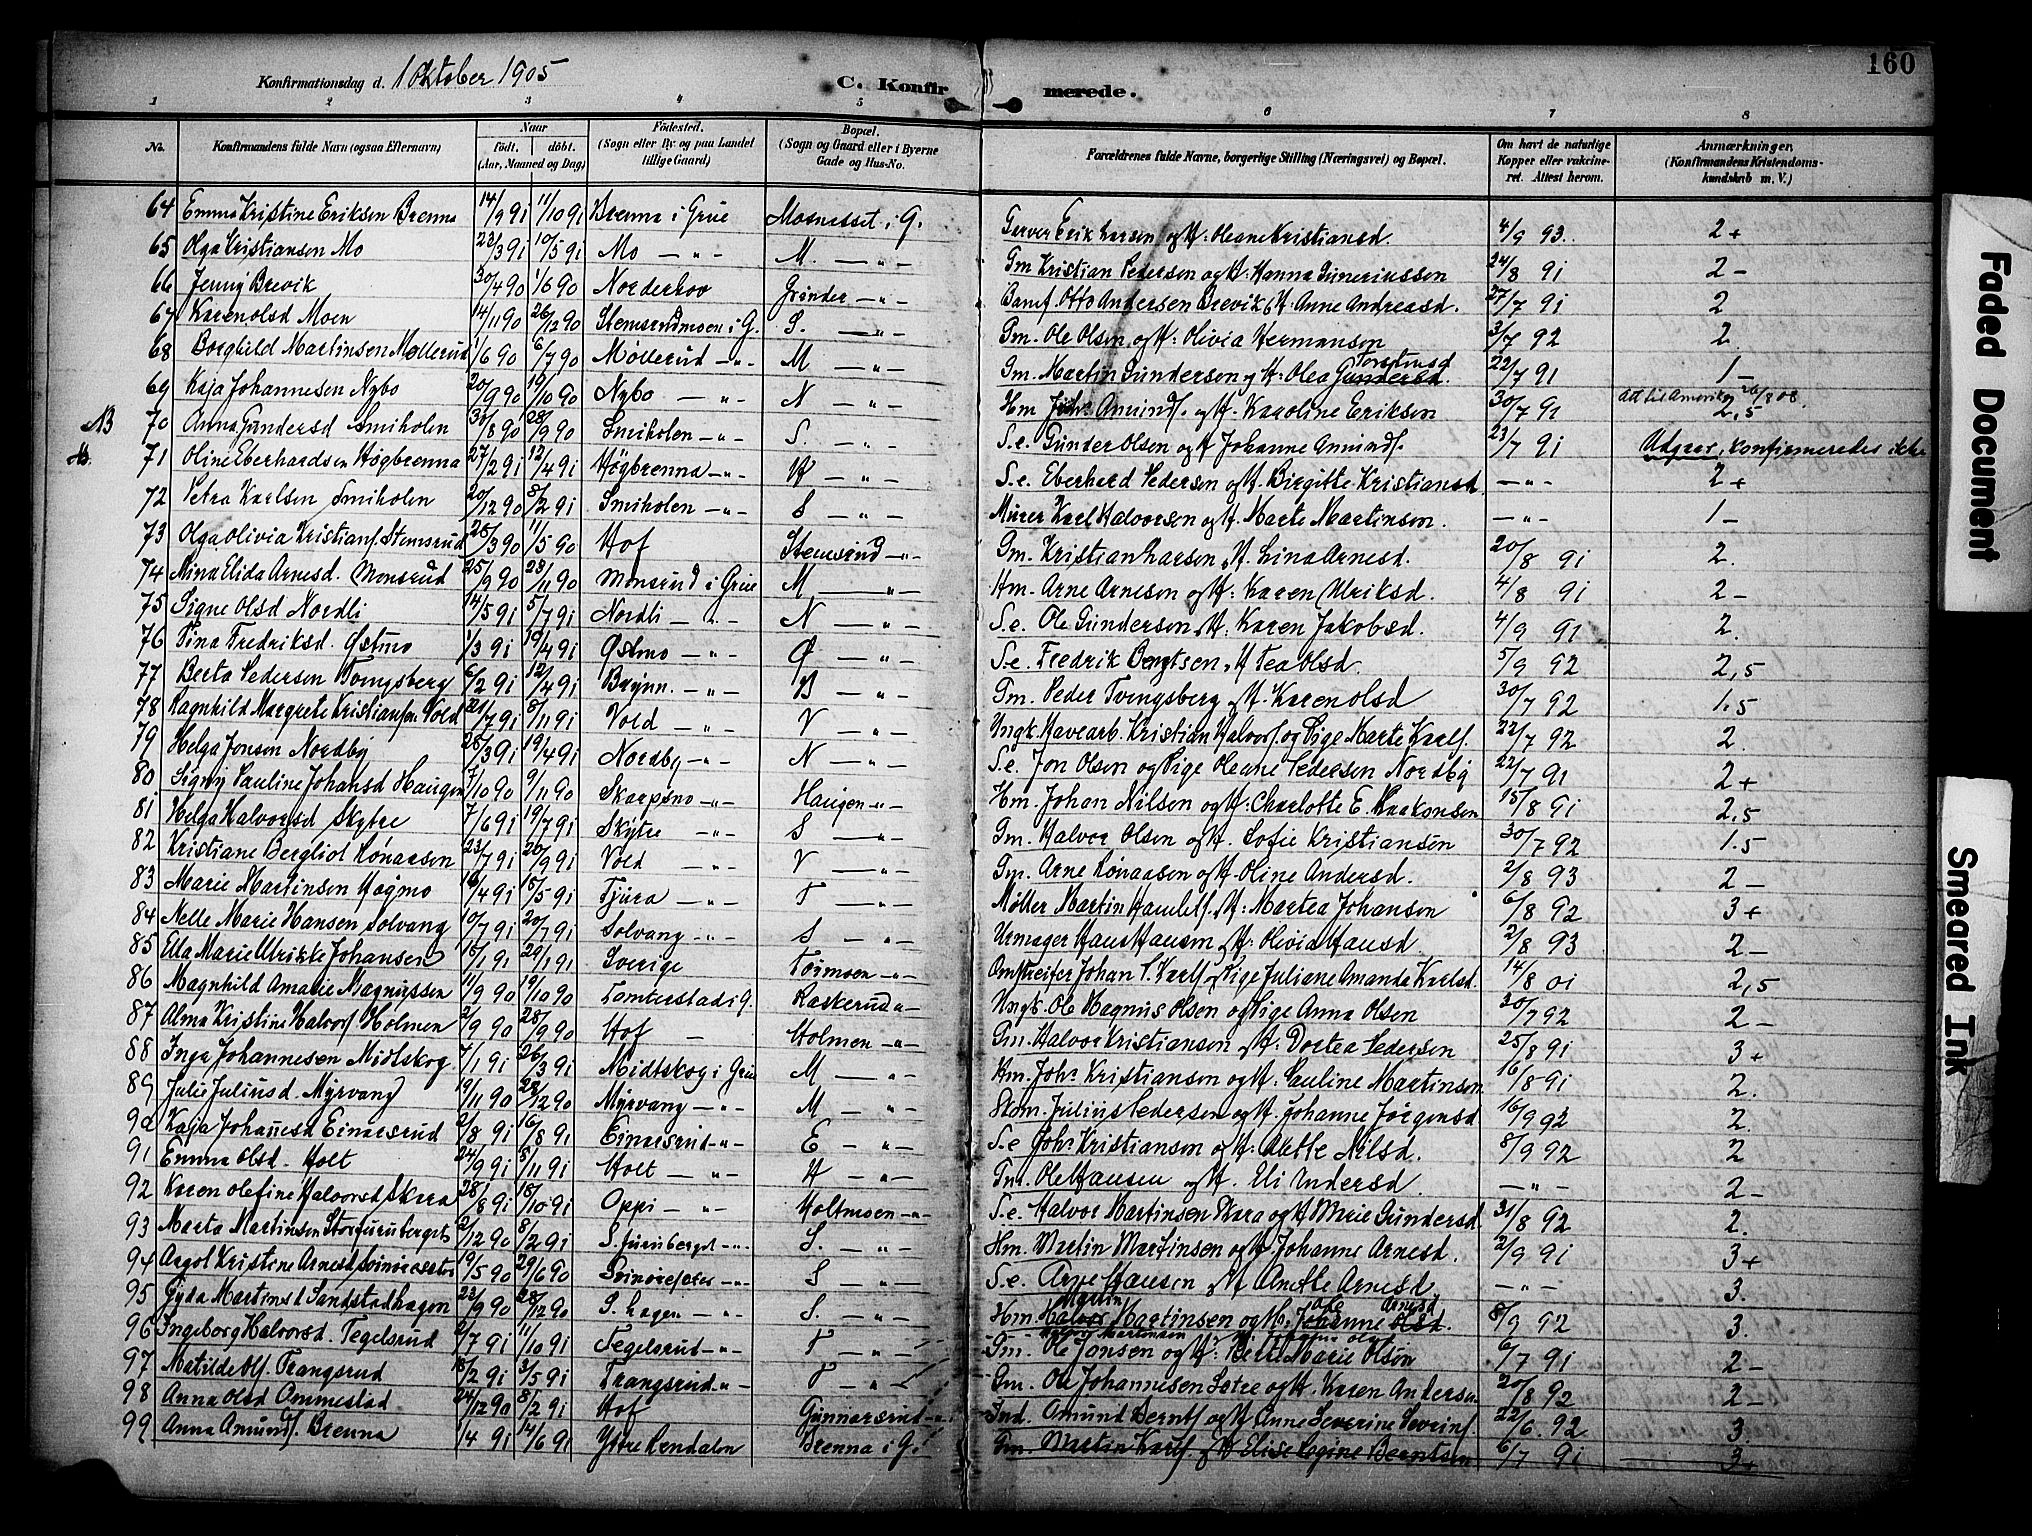 160
Konfirmationsdag d. 1 Oktober 1905
C. Konfirmerede.
1 2 3 4 5 6 7 8
No. Konfirmandens fulde Navn (ogsaa Efternavn) Naar født. døbt. (Aar, Maaned og Dag) Fødested. (Sogn eller By og paa Landet tillige Gaard) Bopæl. (Sogn og Gaard eller i Byerne Gade og Hus-No. Forældrenes fulde Navne, borgerlige Stilling (Næringsvei) og Bopæl. Om havt de naturlige Kopper eller vaccineret. Attest herom. Anmærkninger. (Konfirmandens Kristendomskundskab m. V.)
64 Emma Kristine Eriksen Brenna 14/9 91 11/10 91 Brenna i Grue Mosnesset i G. Garver Erik Larsen og H. Oleane Kristiansd. 4/9 93. 2+
65 Olga Kristiansen Mo 23/3 91 10/5 91 Mo — " — M. — " — Gm Kristian Pedersen og H. Hanna Guneriussen 24/8 91 2 -
66 Jenny Brevik 30/4 90 1/6 90 Norderhov Grinder — " — Otto Andersen Brevik H. Anne Andreasd. 27/7 91 2
67 Karen Olsd Moen 14/11 90 26/12 90 Stemsrudmoen i G. S. — " — Gm. Ole Olsen og H. Olivia Hermansen 3/7 92 2.
68 Borghild Martinsen Møllerud 1/6 90 6/7 90 Møllerud — " — M — " — Gm. Martin Gundersen og H. Olea Gundersd. Torstensd 22/7 91 1 -
69 Kaja Johannesen Nybo 20/9 90 19/10 90 Nybo — " — N — " — Hm Johs Amunds. og H. Karoline Eriksen 30/7 91 Att til Amerika 26/8 08. 2,5
NB 70 Anna Gundersd Smiholen 30/8 90 28/9 90 Smiholen — " — S. — " — S.e. Gunder Olsen og H Johanne Amunds. 23/7 91 Udgaar, konfirmeredes ikke
71 Oline Eberhardsen Høgbrenna 27/2 91 12/4 91 Høgbrenna — " — H — " — S.e. Eberhard Pedersen og H. Birgitte Kristiansd. — " — 2+
72 Petra Karlsen Smiholen 20/12 90 8/2 91 Smiholen — " — S — " — Murer Karl Halvorsen og H. Marte Martinsen. — " — 1 -
73 Olga Olivia Kristians. Stemsrud 28/3 90 11/5 90 Hof Stemsrud — " — Gm. Kristian Larsen H. Lina Arnesd. 20/8 91 2.
74 Nina Elida Arnesd. Monsrud 25/9 90 23/11 90 Monsrud i Grue M — " — Hm. Arne Arnesen og H. Karen Ulriksd. 4/8 91 2 -
75 Signe Olsd Nordli 14/5 91 5/7 91 Nordli — " — N — " — S.e. Ole Gundersen H. Karen Jakobsd. 4/9 91 2.
76 Tina Fredriksd. Østmo 1/3 91 19/4 91 Østmo — " — Ø — " — S.e. Fredrik Bengtsen H Tea Olsd. 5/9 92 2,5
77 Berta Pedersen Tvengsberg 6/2 91 12/4 91 Brynn. — " — B — " — Gm. Peder Tvengsberg H. Karen Olsd 30/7 92 1.5
78 Ragnhild Margrete Kristians. Vold 21/7 91 8/11 91 Vold — " — V — " — Ungk. Havearb. Kristian Halvors. og Pige Marte Karls. 22/7 92 2.
79 Helga Jonsen Nordby 28/3 91 19/4 91 Nordby — " — N — " — S.e. Jon Olsen og Pige Oleane Pedersen Nordby 22/7 91 2+
80 Signy Pauline Johansd Haugen 7/10 90 9/11 90 Skarpsno — " — Haugen — " — Hm. Johan Nilsen og H. Charlotte E. Haakonsen 15/8 91 2,5
81 Helga Halvorsd Skytre 7/6 91 19/7 91 Skytre — " — S — " — Gm. Halvor Olsen og H. Sofie Kristiansen 30/7 92 1.5
82 Kristiane Bergliot Lønaasen 23/7 91 20/9 91 Vold — " — V — " — Gm. Arne Lønaasen og H. Oline Andersd. 2/8 93 2 -
83 Marie Martinsen Hagmo 16/4 91 15/5 91 Tjura — " — T — " — Møller Martin H. Martea Johansen 6/8 92 3+
84 Nelle Marie Hansen Solvang 10/7 91 20/7 91 Solvang — " — S — " — Urmager Hans Hansen H. Olivia Hansd 2/8 93 2 -
85 Ella Marie Ulrikke Johansen 18/1 91 29/1 91 Sverige Tosmoen — " — Omstreifer Johan S. Karls. Pige Juliane Amanda Karlsd. 14/8 01 2,5
86 Magnhild Amalie Magnussen 11/9 90 19/10 90 Tomterstad i G. Raskerud — " — Ungk. Ole Magnus Olsen og Pige Anna Olsen 30/7 92 2 -
87 Alma Kristine Halvors Holmen 2/9 90 28/9 90 Hof — Holmen — " — Gm. Halvor Kristiansen og H. Dortea Pedersen 25/8 91 3+
88 Inga Johannesen Midtskog. 7/1 91 26/3 91 Midtskog i Grue M — " — Hm. Johs Kristiansen og H. Pauline Martinsen 16/8 91 2.
89 Julie Juliusd. Myrvang 19/11 90 28/12 90 Myrvang — " — M — " — Julius Pedersen og H. Johanne Jørgensd 16/9 92 2.
90 Kaja Johannesd Einarsrud 2/8 91 16/8 91 Einarsrud — " — E — " — S.e Johs Kristiansen og H. Nilsd. 8/9 92 2
91 Emma Olsd. Holt 24/9 91 8/11 91 Holt — " — H — " — Gm. Ole Hansen og H. Eli Andersd. — " — 2 -
92 Karen Olefine Halvorsd Skara 28/8 91 18/10 91 Oppi — " — Holtmoen — " — S.e. Halvor Martinsen Skara og H Marie Gundersd 31/8 92 2.
93 Marta Martinsen Storfuruberget 2/12 90 8/2 91 S. furuberget — " — S. — " — Hm. Martin Martinsen og H Johanne Arnesd. 2/9 91 3+
94 Kristine Arnesd 19/5 90 29/6 90 — " — S — " — S.e. Arne Hansen H Anette Arnesd. — " — 3.
95 Gyda Martinsd Sandstadhagen 23/9 90 28/12 90 S. hagen — " — S. — " — Hm. Halvor Martin Martinsen og H. Johanne Olsd. Arnesd 8/9 92 3.
96 Ingeborg Halvorsd. Tegelsrud 2/7 91 11/10 91 Tegelsrud — " — T — " — Gm. Ole Jonsen og H. Berte Marie Olsen 6/7 91 2 -
97 Matilde Ols. Trangsrud 18/2 91 3/5 91 Trangsrud " — T — " — Gm. Ole Johannesen Sætre og H. Karen Andersen 20/8 92 2 -
98 Anna Olsd Ommestad 24/12 90 8/2 91 Hof Gunnarsrud — " Ind. Amund Bernts. og H Anne Severine Severins. 22/6 92 3
99 Anna Amunds. Brenna 1/4 91 14/6 91 Ytre Rendalen Brenna i G. Gm. Martin Karls. H Elise Regine Berntsen 6/7 91 3+
Faded Document
Smeared Ink